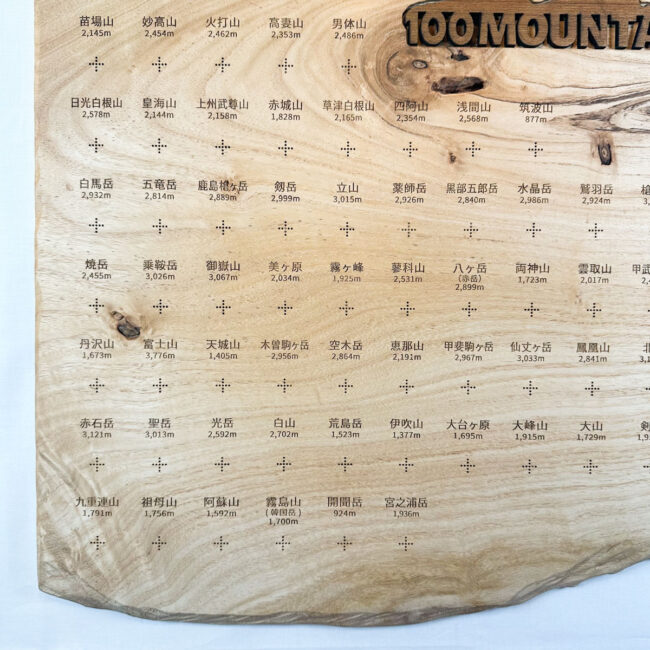 100MOUNTA
苗場山 妙高山 火打山 高妻山 男体山
2,145m 2,454m 2,462m 2,353m 2,486m
日光白根山 皇海山 上州武尊山 赤城山 草津白根山 四阿山 浅間山 筑波山
2,578m 2,144m 2,158m 1,828m 2,165m 2,354m 2,568m 877m
白馬岳 五竜岳 鹿島槍ヶ岳 剱岳 立山 薬師岳 黒部五郎岳 水晶岳 鷲羽岳 槍
2,932m 2,814m 2,889m 2,999m 3,015m 2,926m 2,840m 2,986m 2,924m 3,
焼岳 乗鞍岳 御嶽山 美ヶ原 霧ヶ峰 蓼科山 八ヶ岳 両神山 雲取山 甲武
(赤岳)
2,455m 3,026m 3,067m 2,034m 1,925m 2,531m 2,899m 1,723m 2,017m 2,4
丹沢山 富士山 天城山 木曽駒ヶ岳 空木岳 恵那山 甲斐駒ヶ岳 仙丈ヶ岳 鳳凰山 北
1,673m 3,776m 1,405m 2,956m 2,864m 2,191m 2,967m 3,033m 2,841m 3,1
赤石岳 聖岳 光岳 白山 荒島岳 伊吹山 大台ヶ原 大峰山 大山 剣
3,121m 3,013m 2,592m 2,702m 1,523m 1,377m 1,695m 1,915m 1,729m 1,9
九重連山 祖母山 阿蘇山 霧島山 開聞岳 宮之浦岳
(韓国岳)
1,791m 1,756m 1,592m 1,700m 924m 1,936m